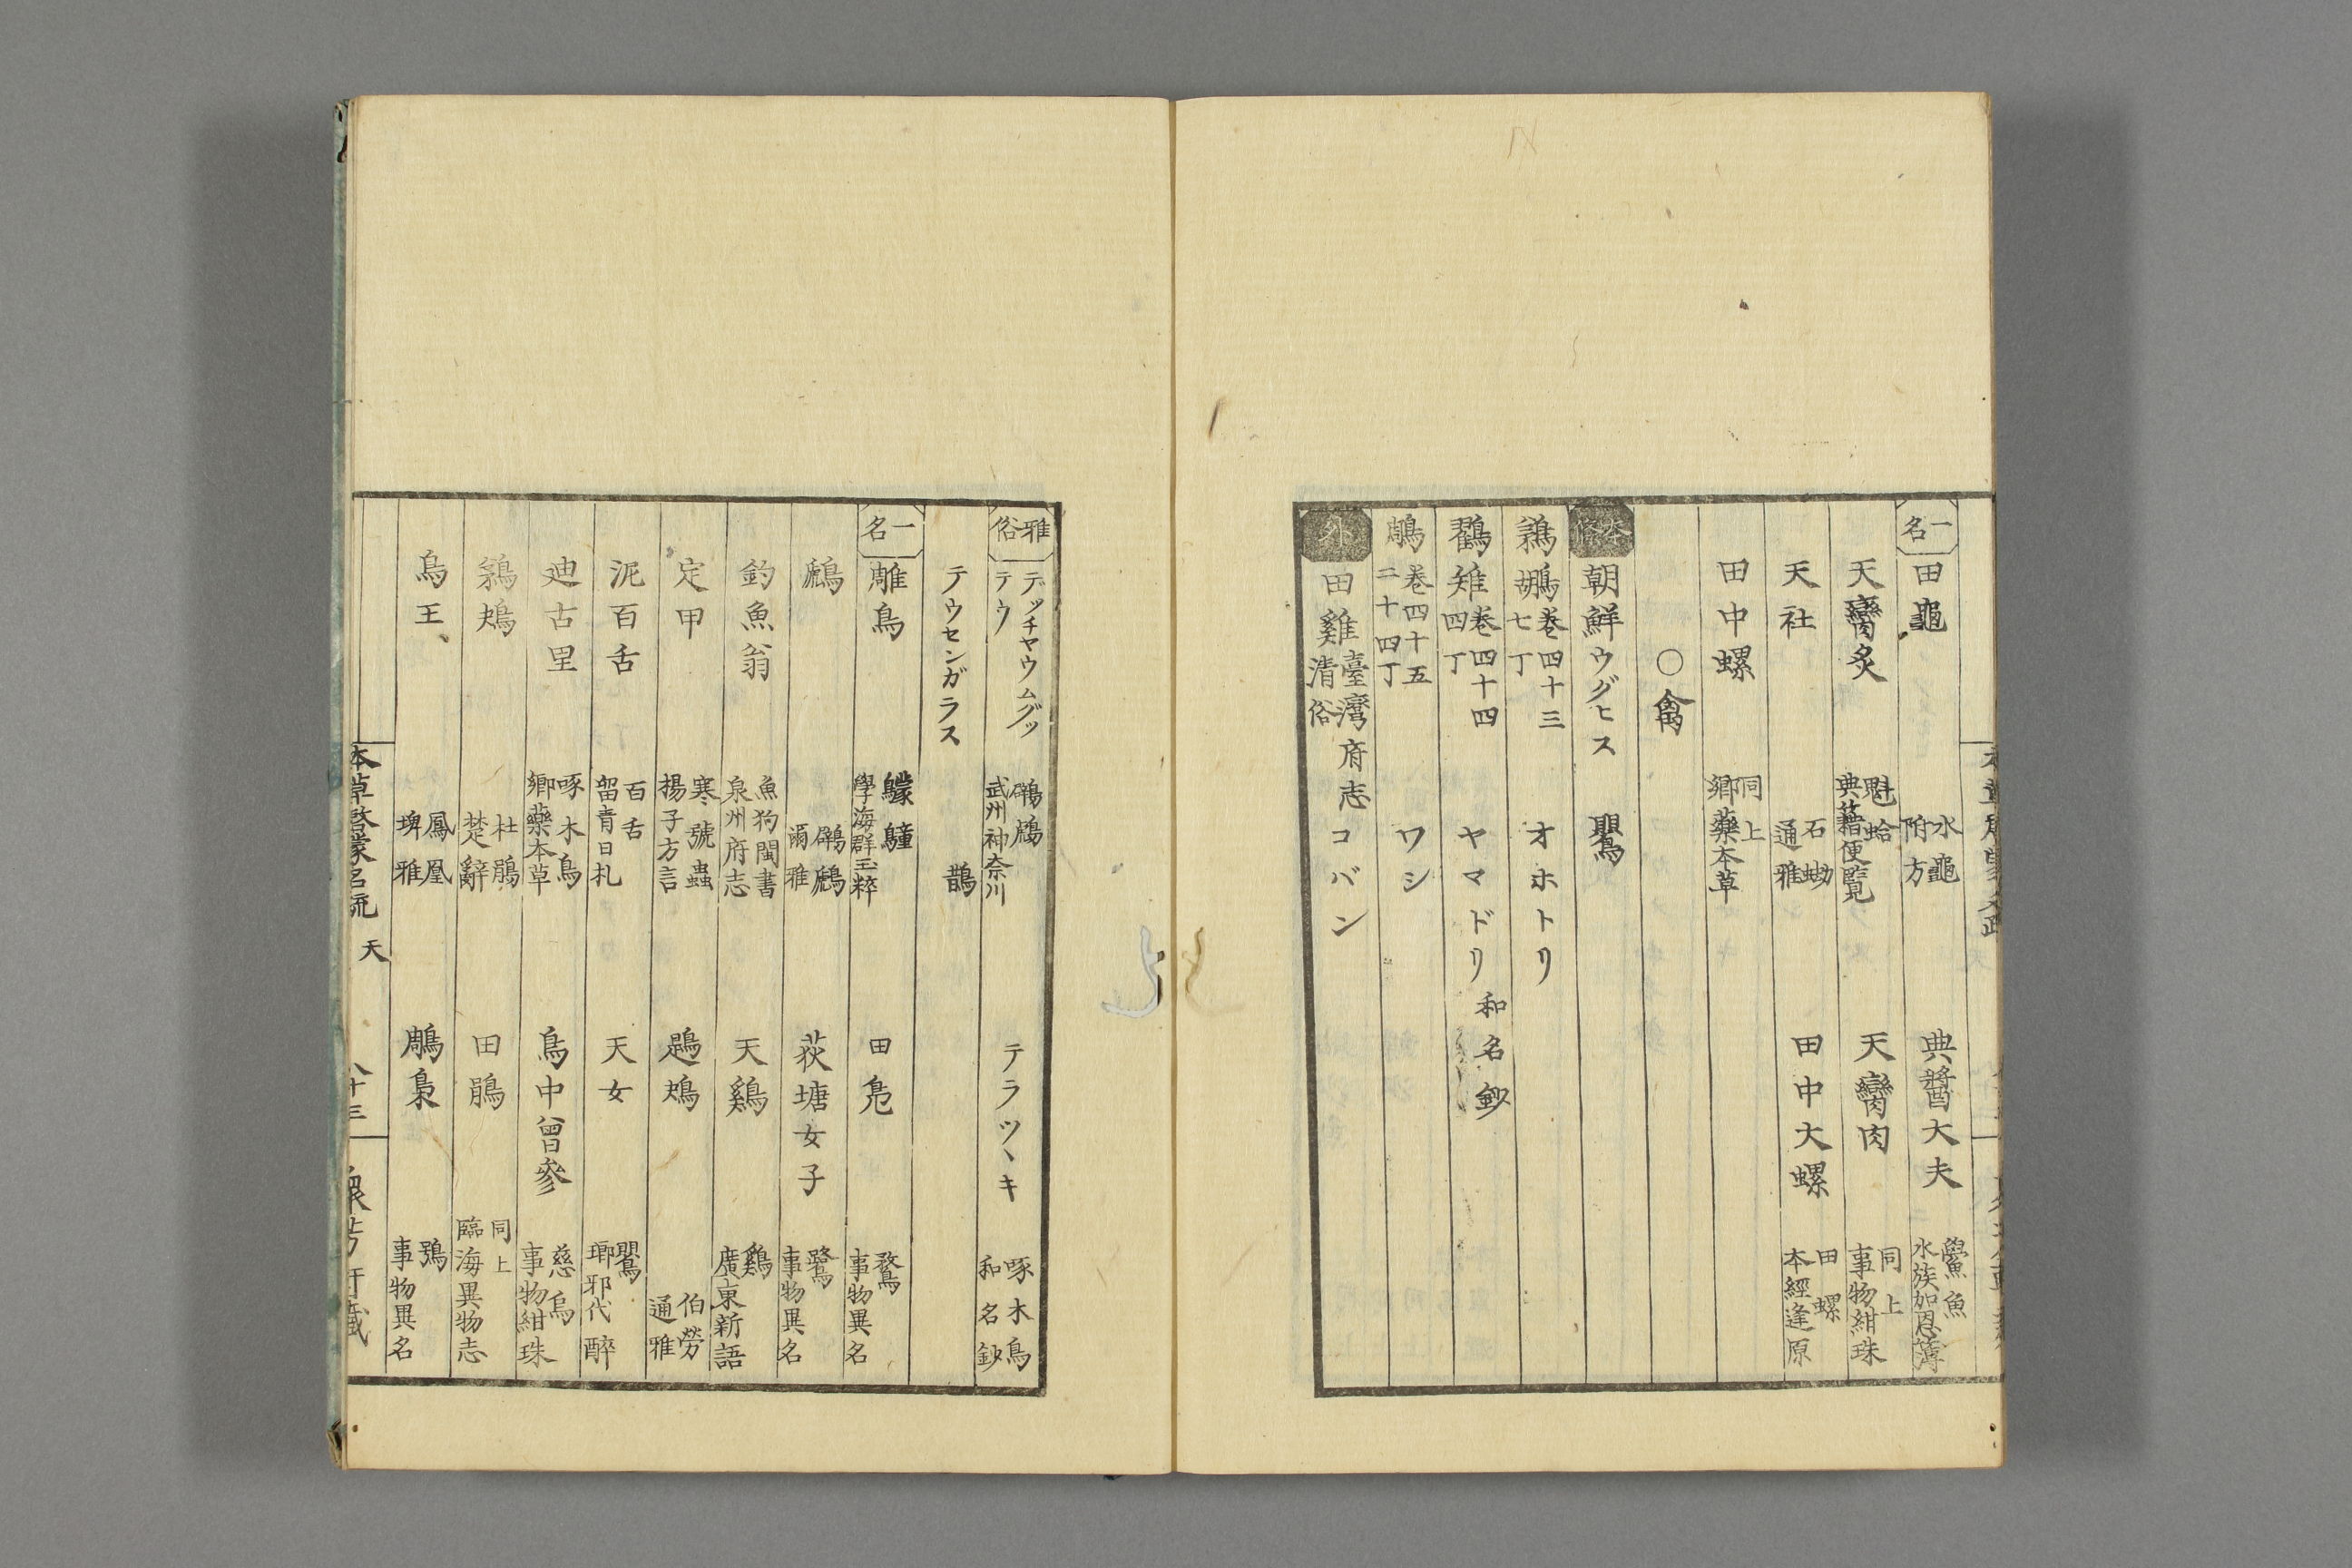 一名 田龜 水龜 附方 典醬大夫 鱟魚 水族加恩簿
天臠炙 魁蛤 典藉便覽 天臠肉 同上 事物紺珠
天社 石蜐 通雅 田中大螺 田螺 本經逢原
田中螺 同上 鄉藥本草
○禽
本俗 朝鮮ウグヒス 鸎
鵜鶘 卷四十三 七丁 オホトリ
鸐雉 卷四十四 四丁 ヤマドリ 和名鈔
鵰 卷四十五 二十四丁 ワシ
外 田雞 臺灣府志 清俗 コバン
雅俗 デッチヤウムグッテウ 武州神奈川 テラツヽキ 啄木鳥 和名鈔
テウセンガラス 鵲
一名 雕鳥 學海群玉粹 田鳧 鶩 事物異名
鷉 鸊鷉 爾雅 荻塘女子 鷺 事物異名
釣魚翁 魚狗 閩書 泉州府志 天鷄 鷄 廣東新語
定甲 寒號蟲 揚子方言 鶗鴂 伯勞 通雅
泥百舌 百舌 留青日札 天女 鸎 瑯邪代醉
迪古里 啄木鳥 鄉藥本草 鳥中曾參 慈烏 事物紺珠
鵜鴂 杜鵑 楚辭 田鵑 同上 臨海異物志
鳥王 鳳凰 埤雅 鵰梟 鴞 事物異名
本草啓蒙名疏 天 八十三 衆芳軒藏